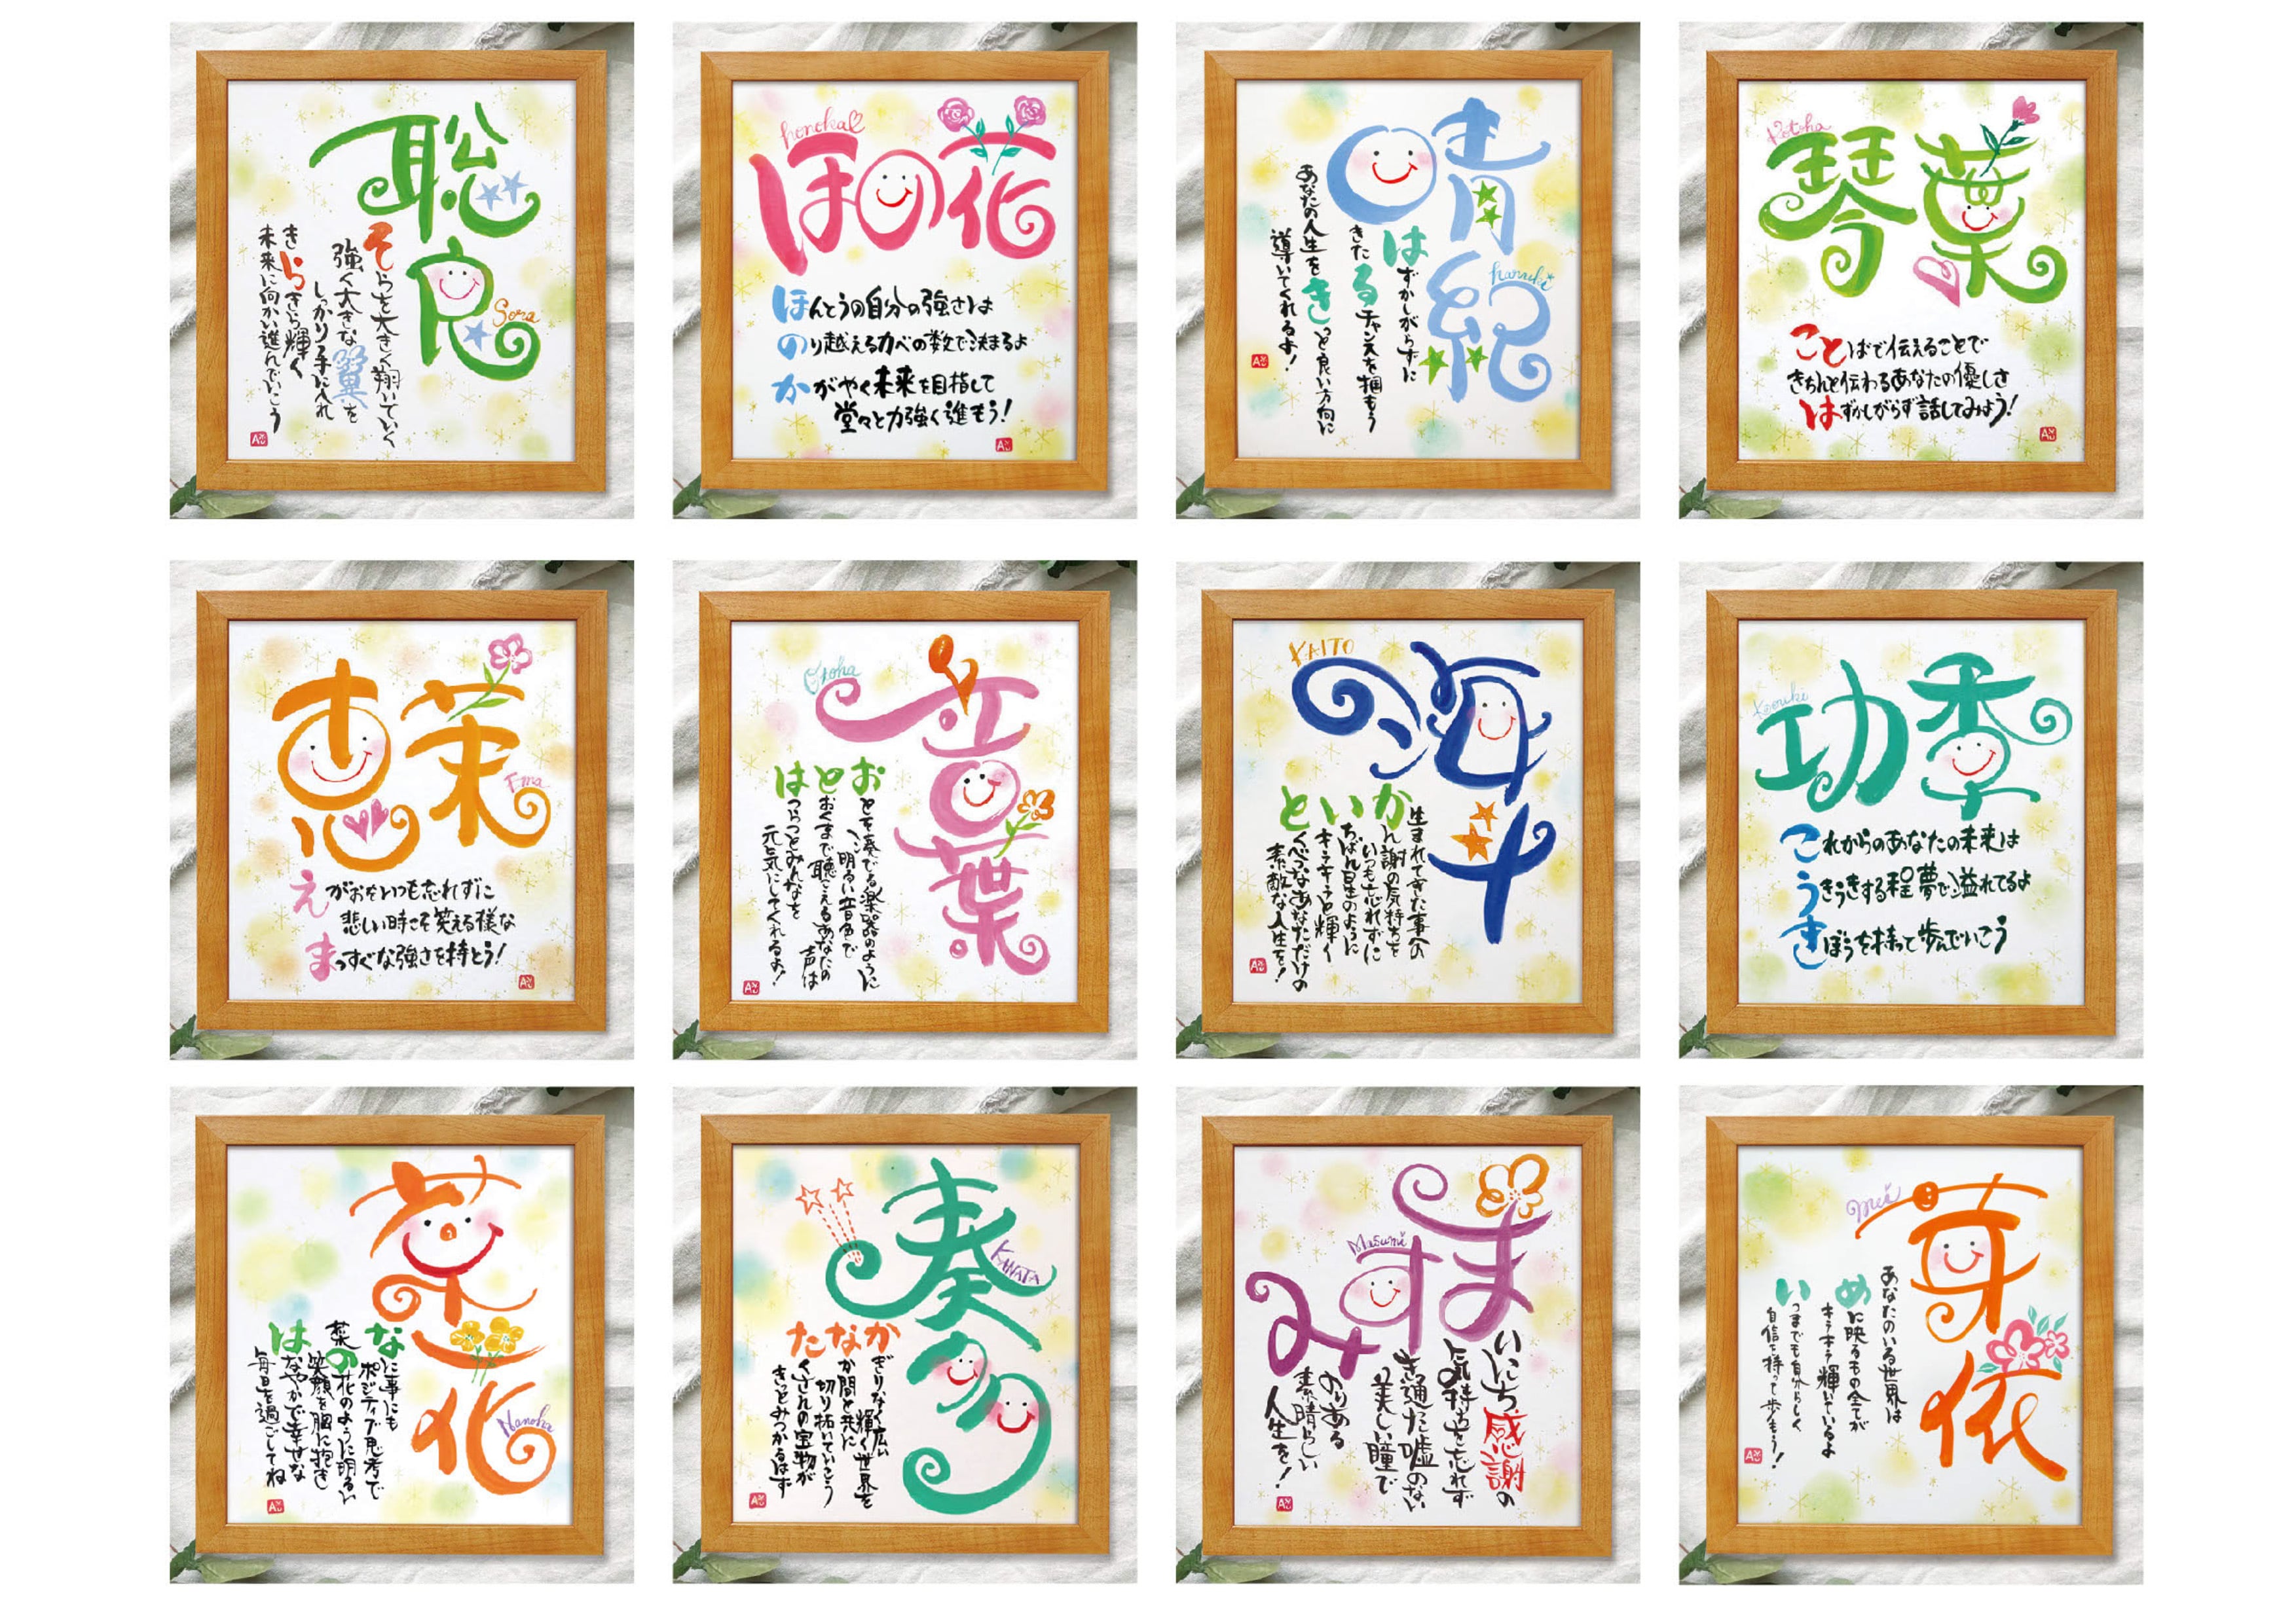 聡良
Sora
そらを大きく翔いていく
強く大きな翼を
しっかり手に入れ
きらきら輝く
未来に向かい進んでいこう
honoka
ほの花
ほんとうの自分の強さは
のり越えるカベの数で決まるよ
かがやく未来を目指して
堂々と力強く進もう!
晴紀
haruki
はずかしがらずに
きたるチャンスを掴もう
あなたの人生をきっと良い方向に
導いてくれるよ!
Kotoha
琴葉
ことばで伝えることで
きちんと伝わるあなたの優しさ
はずかしがらず話してみよう!
恵茉
Ema
えがおをいつも忘れずに
悲しい時こそ笑える様な
まっすぐな強さを持とう!
Otoha
音葉
おとを奏でる楽器のように
明るい音色で
とおくまで聴こえるあなたの声は
はつらつとみんなを
元気にしてくれるよ!
KAITO
海斗
生まれてきた事への
かん謝の気持ちを
いつも忘れずに
いちばん星のように
キラキラと輝く
とくべつなあなただけの
素敵な人生を!
Kouki
功季
これからのあなたの未来は
うきうきする程夢で溢れてるよ
きぼうを持って歩んでいこう
菜花
Nanoha
なに事にも
ポジティブ思考で
菜の花のように明るい
笑顔を胸に抱き
はなやかで幸せな
毎日を過ごしてね
奏多
KANATA
かぎりなく広い
輝く世界を
なか間と共に
切り拓いていこう
たくさんの宝物が
きっとみつかるはず
ますみ
Masumi
まいにち感謝の
気持ちを忘れず
すき通った嘘のない
美しい瞳で
みのりある
素晴らしい
人生を!
Mei
芽依
あなたのいる世界は
めに映るもの全てが
キラキラ輝いているよ
いつまでも自分らしく
自信を持って歩もう!